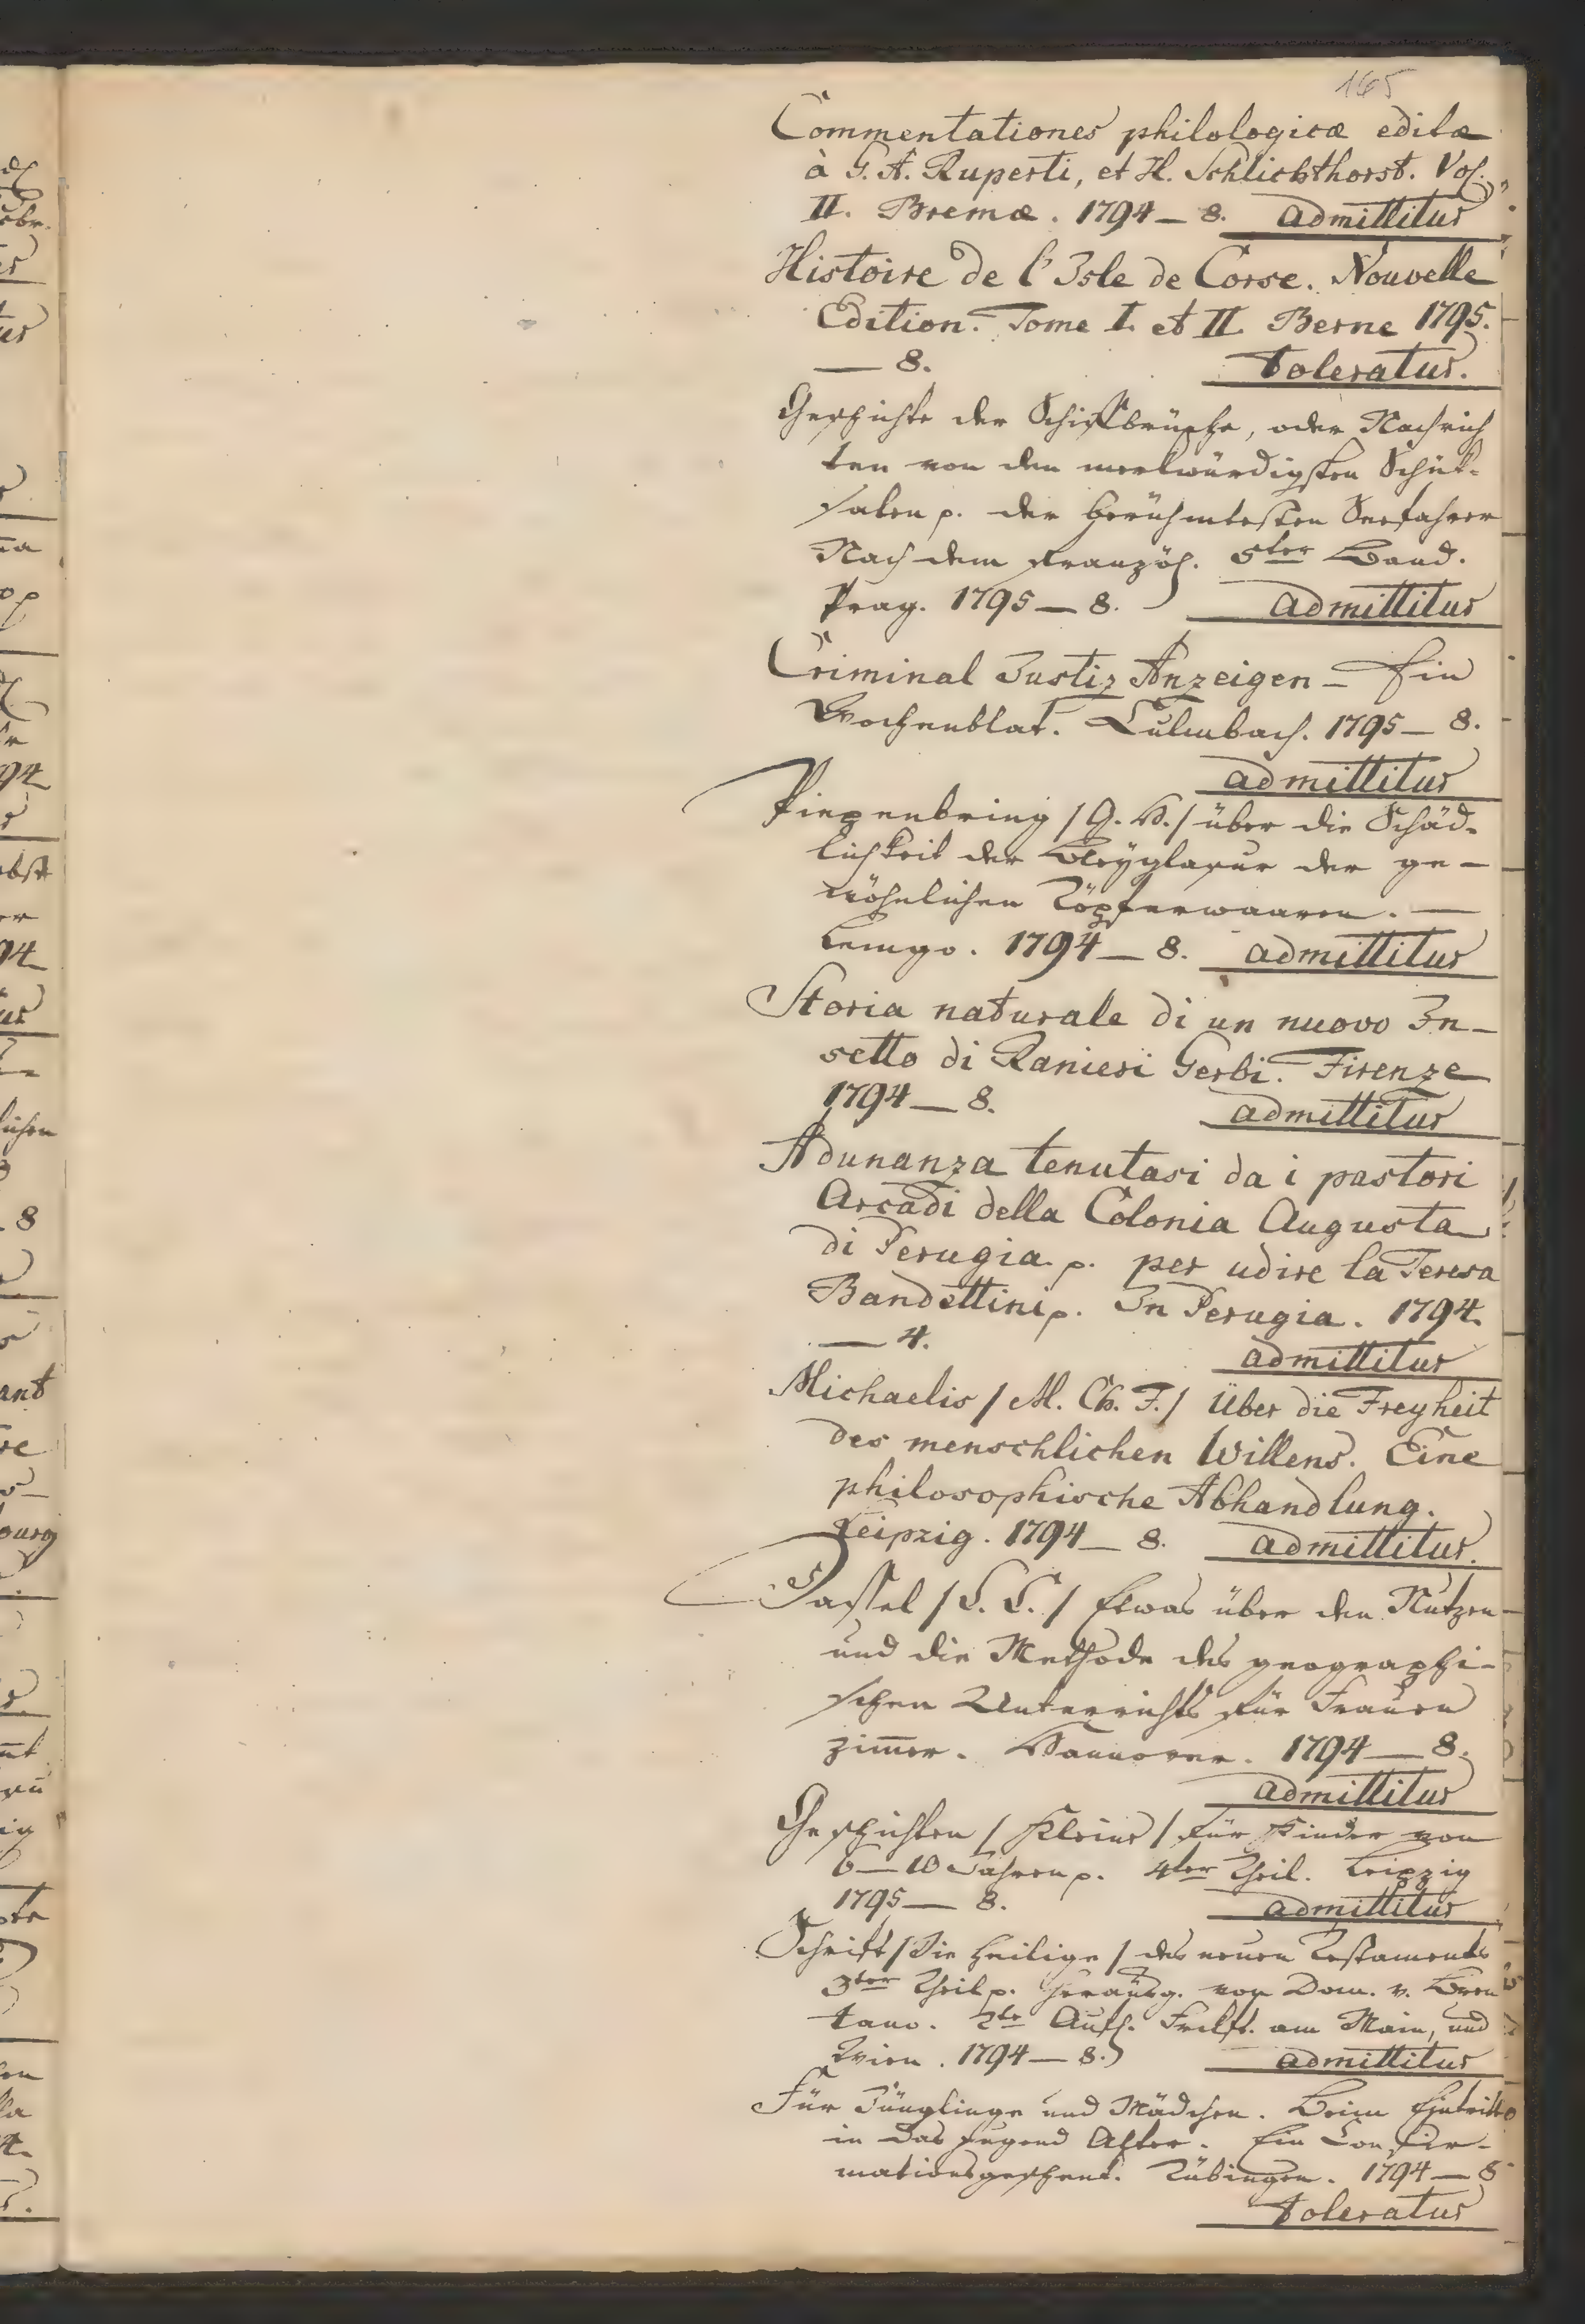 165
Commentationes philologicæ editæ
à G. A. Ruperti, et H. Schlichthorst. Vol.
II. Bremæ. 1794 — 8. admittitur
Histoire de l'Isle de Corse. Nouvelle
Edition. Tome I. et II. Berne 1795.
— 8. toleratur.
Geschichte der Schiffbrüche, oder Nachrich
ten von den merkwürdigsten Schik-
salen p. der berühmtesten Seefahrer
Nach dem Französ. 5ter Band.
Prag. 1795 — 8. admittitur
Criminal Justiz Anzeigen — Ein
Wochenblat. Culmbach. 1795 — 8.
admittitur
Piepenbring / G. H. / über die Schäd-
lichkeit der Bleyglasur der ge-
wöhnlichen Töpferwaaren. —
Lemgo. 1794 — 8. admittitur
Storia naturale di un nuovo In-
setto di Ranieri Gerbi. Firenze
1794 — 8. admittitur
Adunanza tenutasi da i pastori
Arcadi della Colonia Augusta
di Perugia p. per udire la Teresa
Bandettini p. In Perugia. 1794.
— 4. admittitur
Michaelis / M. Ch. F. / Über die Freyheit
des menschlichen Willens. Eine
philosophische Abhandlung.
Leipzig. 1794 — 8. admittitur.
Dassel / C. C. / Etwas über den Nutzen
und die Methode des geographi-
schen Unterrichts für Frauen
zim̄er. Hannover. 1794 — 8.
admittitur
Geschichten / Kleine / für Kinder von
6 — 10 Jahren p. 4ter Theil. Leipzig
1795 — 8. admittitur
Schrift / Die heilige / des neuen Testaments
3ter Theil p. herausg. von Dom. v. Bren
tano. 2te Aufl. Frkft. am Main, und
Wien. 1794 — 8. admittitur
Für Jünglinge und Mädchen. Beim Eintritte
in das Jugend Alter. Ein Confir-
mationsgeschenk. Tübingen. 1794 — 8
toleratur